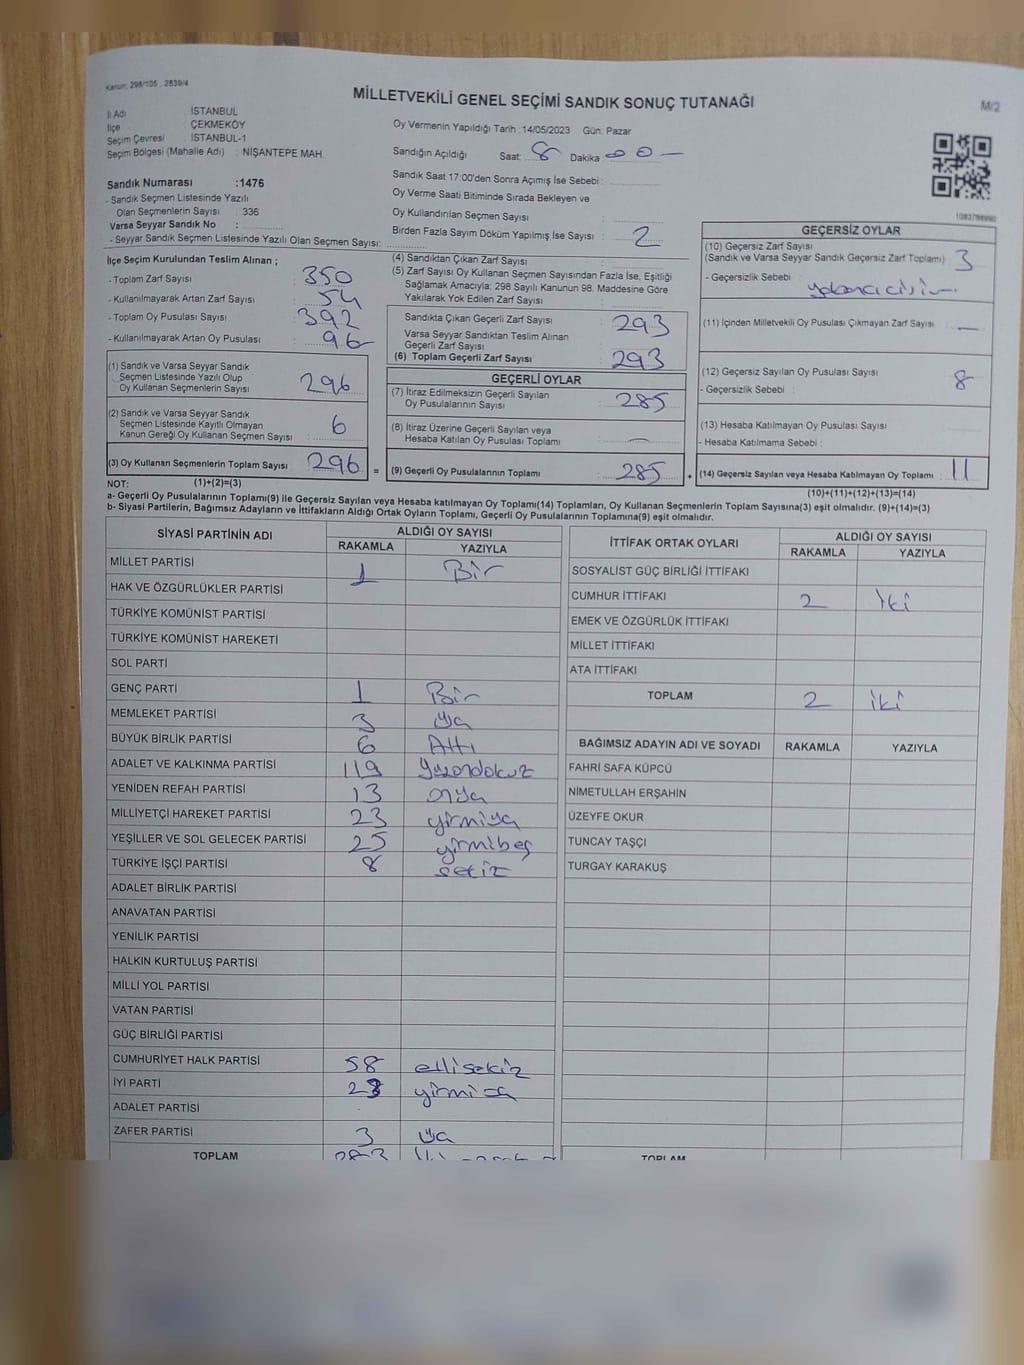 Kanun: 298/105 , 2839/4
MİLLETVEKİLİ GENEL SEÇİMİ SANDIK SONUÇ TUTANAĞI
M/2
İl Adı : İSTANBUL
İlçe : ÇEKMEKÖY
Seçim Çevresi : İSTANBUL-1
Seçim Bölgesi (Mahalle Adı) : NİŞANTEPE MAH.
Sandık Numarası :1476
- Sandık Seçmen Listesinde Yazılı
Olan Seçmenlerin Sayısı : 336
Varsa Seyyar Sandık No :
- Seyyar Sandık Seçmen Listesinde Yazılı Olan Seçmen Sayısı:
Oy Vermenin Yapıldığı Tarih :14/05/2023 Gün: Pazar
Sandığın Açıldığı Saat: 8 Dakika 00
Sandık Saat 17:00'den Sonra Açılmış İse Sebebi :
Oy Verme Saati Bitiminde Sırada Bekleyen ve
Oy Kullandırılan Seçmen Sayısı :
Birden Fazla Sayım Döküm Yapılmış İse Sayısı : 2
İlçe Seçim Kurulundan Teslim Alınan ;
- Toplam Zarf Sayısı : 350
- Kullanılmayarak Artan Zarf Sayısı : 54
- Toplam Oy Pusulası Sayısı : 392
- Kullanılmayarak Artan Oy Pusulası : 96
(1) Sandık ve Varsa Seyyar Sandık
Seçmen Listesinde Yazılı Olup
Oy Kullanan Seçmenlerin Sayısı : 296
(2) Sandık ve Varsa Seyyar Sandık
Seçmen Listesinde Kayıtlı Olmayan
Kanun Gereği Oy Kullanan Seçmen Sayısı : 6
(3) Oy Kullanan Seçmenlerin Toplam Sayısı : 296
(1)+(2)=(3)
(4) Sandıktan Çıkan Zarf Sayısı :
(5) Zarf Sayısı Oy Kullanan Seçmen Sayısından Fazla İse, Eşitliği
Sağlamak Amacıyla; 298 Sayılı Kanunun 98. Maddesine Göre
Yakılarak Yok Edilen Zarf Sayısı :
Sandıkta Çıkan Geçerli Zarf Sayısı : 293
Varsa Seyyar Sandıktan Teslim Alınan
Geçerli Zarf Sayısı :
(6) Toplam Geçerli Zarf Sayısı : 293
GEÇERLİ OYLAR
(7) İtiraz Edilmeksizin Geçerli Sayılan
Oy Pusulalarının Sayısı : 285
(8) İtiraz Üzerine Geçerli Sayılan veya
Hesaba Katılan Oy Pusulası Toplamı : —
= (9) Geçerli Oy Pusulalarının Toplamı : 285
1083788990
GEÇERSİZ OYLAR
(10) Geçersiz Zarf Sayısı
(Sandık ve Varsa Seyyar Sandık Geçersiz Zarf Toplamı) : 3
- Geçersizlik Sebebi :
(11) İçinden Milletvekili Oy Pusulası Çıkmayan Zarf Sayısı : —
(12) Geçersiz Sayılan Oy Pusulası Sayısı : 8
- Geçersizlik Sebebi :
(13) Hesaba Katılmayan Oy Pusulası Sayısı :
- Hesaba Katılmama Sebebi :
+ (14) Geçersiz Sayılan veya Hesaba Katılmayan Oy Toplamı : 11
(10)+(11)+(12)+(13)=(14)
NOT:
a- Geçerli Oy Pusulalarının Toplamı(9) ile Geçersiz Sayılan veya Hesaba katılmayan Oy Toplamı(14) Toplamları, Oy Kullanan Seçmenlerin Toplam Sayısına(3) eşit olmalıdır. (9)+(14)=(3)
b- Siyasi Partilerin, Bağımsız Adayların ve İttifakların Aldığı Ortak Oyların Toplamı, Geçerli Oy Pusulalarının Toplamına(9) eşit olmalıdır.
SİYASİ PARTİNİN ADI ALDIĞI OY SAYISI
RAKAMLA YAZIYLA
MİLLET PARTİSİ 1 Bir
HAK VE ÖZGÜRLÜKLER PARTİSİ
TÜRKİYE KOMÜNİST PARTİSİ
TÜRKİYE KOMÜNİST HAREKETİ
SOL PARTİ
GENÇ PARTİ 1 Bir
MEMLEKET PARTİSİ 3 üç
BÜYÜK BİRLİK PARTİSİ 6 Altı
ADALET VE KALKINMA PARTİSİ 119 yüzondokuz
YENİDEN REFAH PARTİSİ 13 onüç
MİLLİYETÇİ HAREKET PARTİSİ 23 yirmiüç
YEŞİLLER VE SOL GELECEK PARTİSİ 25 yirmibeş
TÜRKİYE İŞÇİ PARTİSİ 8 sekiz
ADALET BİRLİK PARTİSİ
ANAVATAN PARTİSİ
YENİLİK PARTİSİ
HALKIN KURTULUŞ PARTİSİ
MİLLİ YOL PARTİSİ
VATAN PARTİSİ
GÜÇ BİRLİĞİ PARTİSİ
CUMHURİYET HALK PARTİSİ 58 ellisekiz
İYİ PARTİ 23 yirmiüç
ADALET PARTİSİ
ZAFER PARTİSİ 3 üç
TOPLAM 283
İTTİFAK ORTAK OYLARI ALDIĞI OY SAYISI
RAKAMLA YAZIYLA
SOSYALİST GÜÇ BİRLİĞİ İTTİFAKI
CUMHUR İTTİFAKI 2 iki
EMEK VE ÖZGÜRLÜK İTTİFAKI
MİLLET İTTİFAKI
ATA İTTİFAKI
TOPLAM 2 iki
BAĞIMSIZ ADAYIN ADI VE SOYADI RAKAMLA YAZIYLA
FAHRİ SAFA KÜPCÜ
NİMETULLAH ERŞAHİN
ÜZEYFE OKUR
TUNCAY TAŞÇI
TURGAY KARAKUŞ
TOPLAM